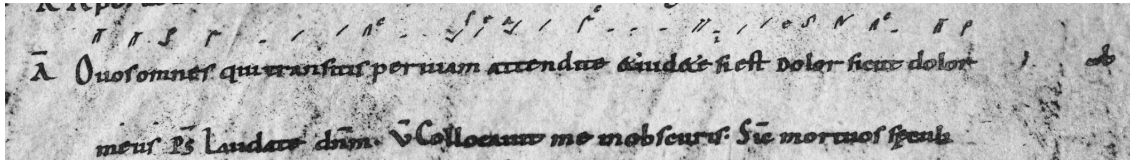 Ā O uos omnes qui transitis per uiam attendite & uid&e si est dolor sicut dolor
meus Ps̄ Laudate dn̄m. V̄ Collocauit me in obscuris. Sic̄ mortuos sęculi